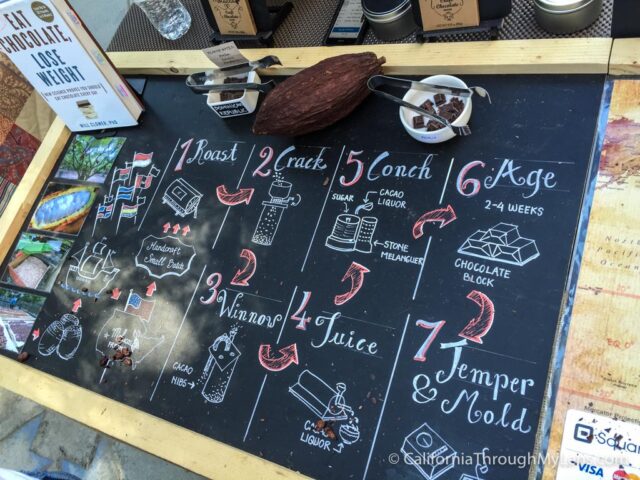 EAT
CHOCOLATE,
LOSE
WEIGHT
WILL CLOWER, PhD
DOMINICAN
REPUBLIC
1 Roast
2 Crack
5 Conch
6 Age
SUGAR
CACAO
LIQUOR
STONE
MELANGUER
2-4 WEEKS
CHOCOLATE
BLOCK
Handcraft
Small Batch
3 Winnow
4 Juice
7 Temper
& Mold
CACAO
NIBS
CACAO
LIQUOR
Square
VISA
CaliforniaThroughMyLens.com